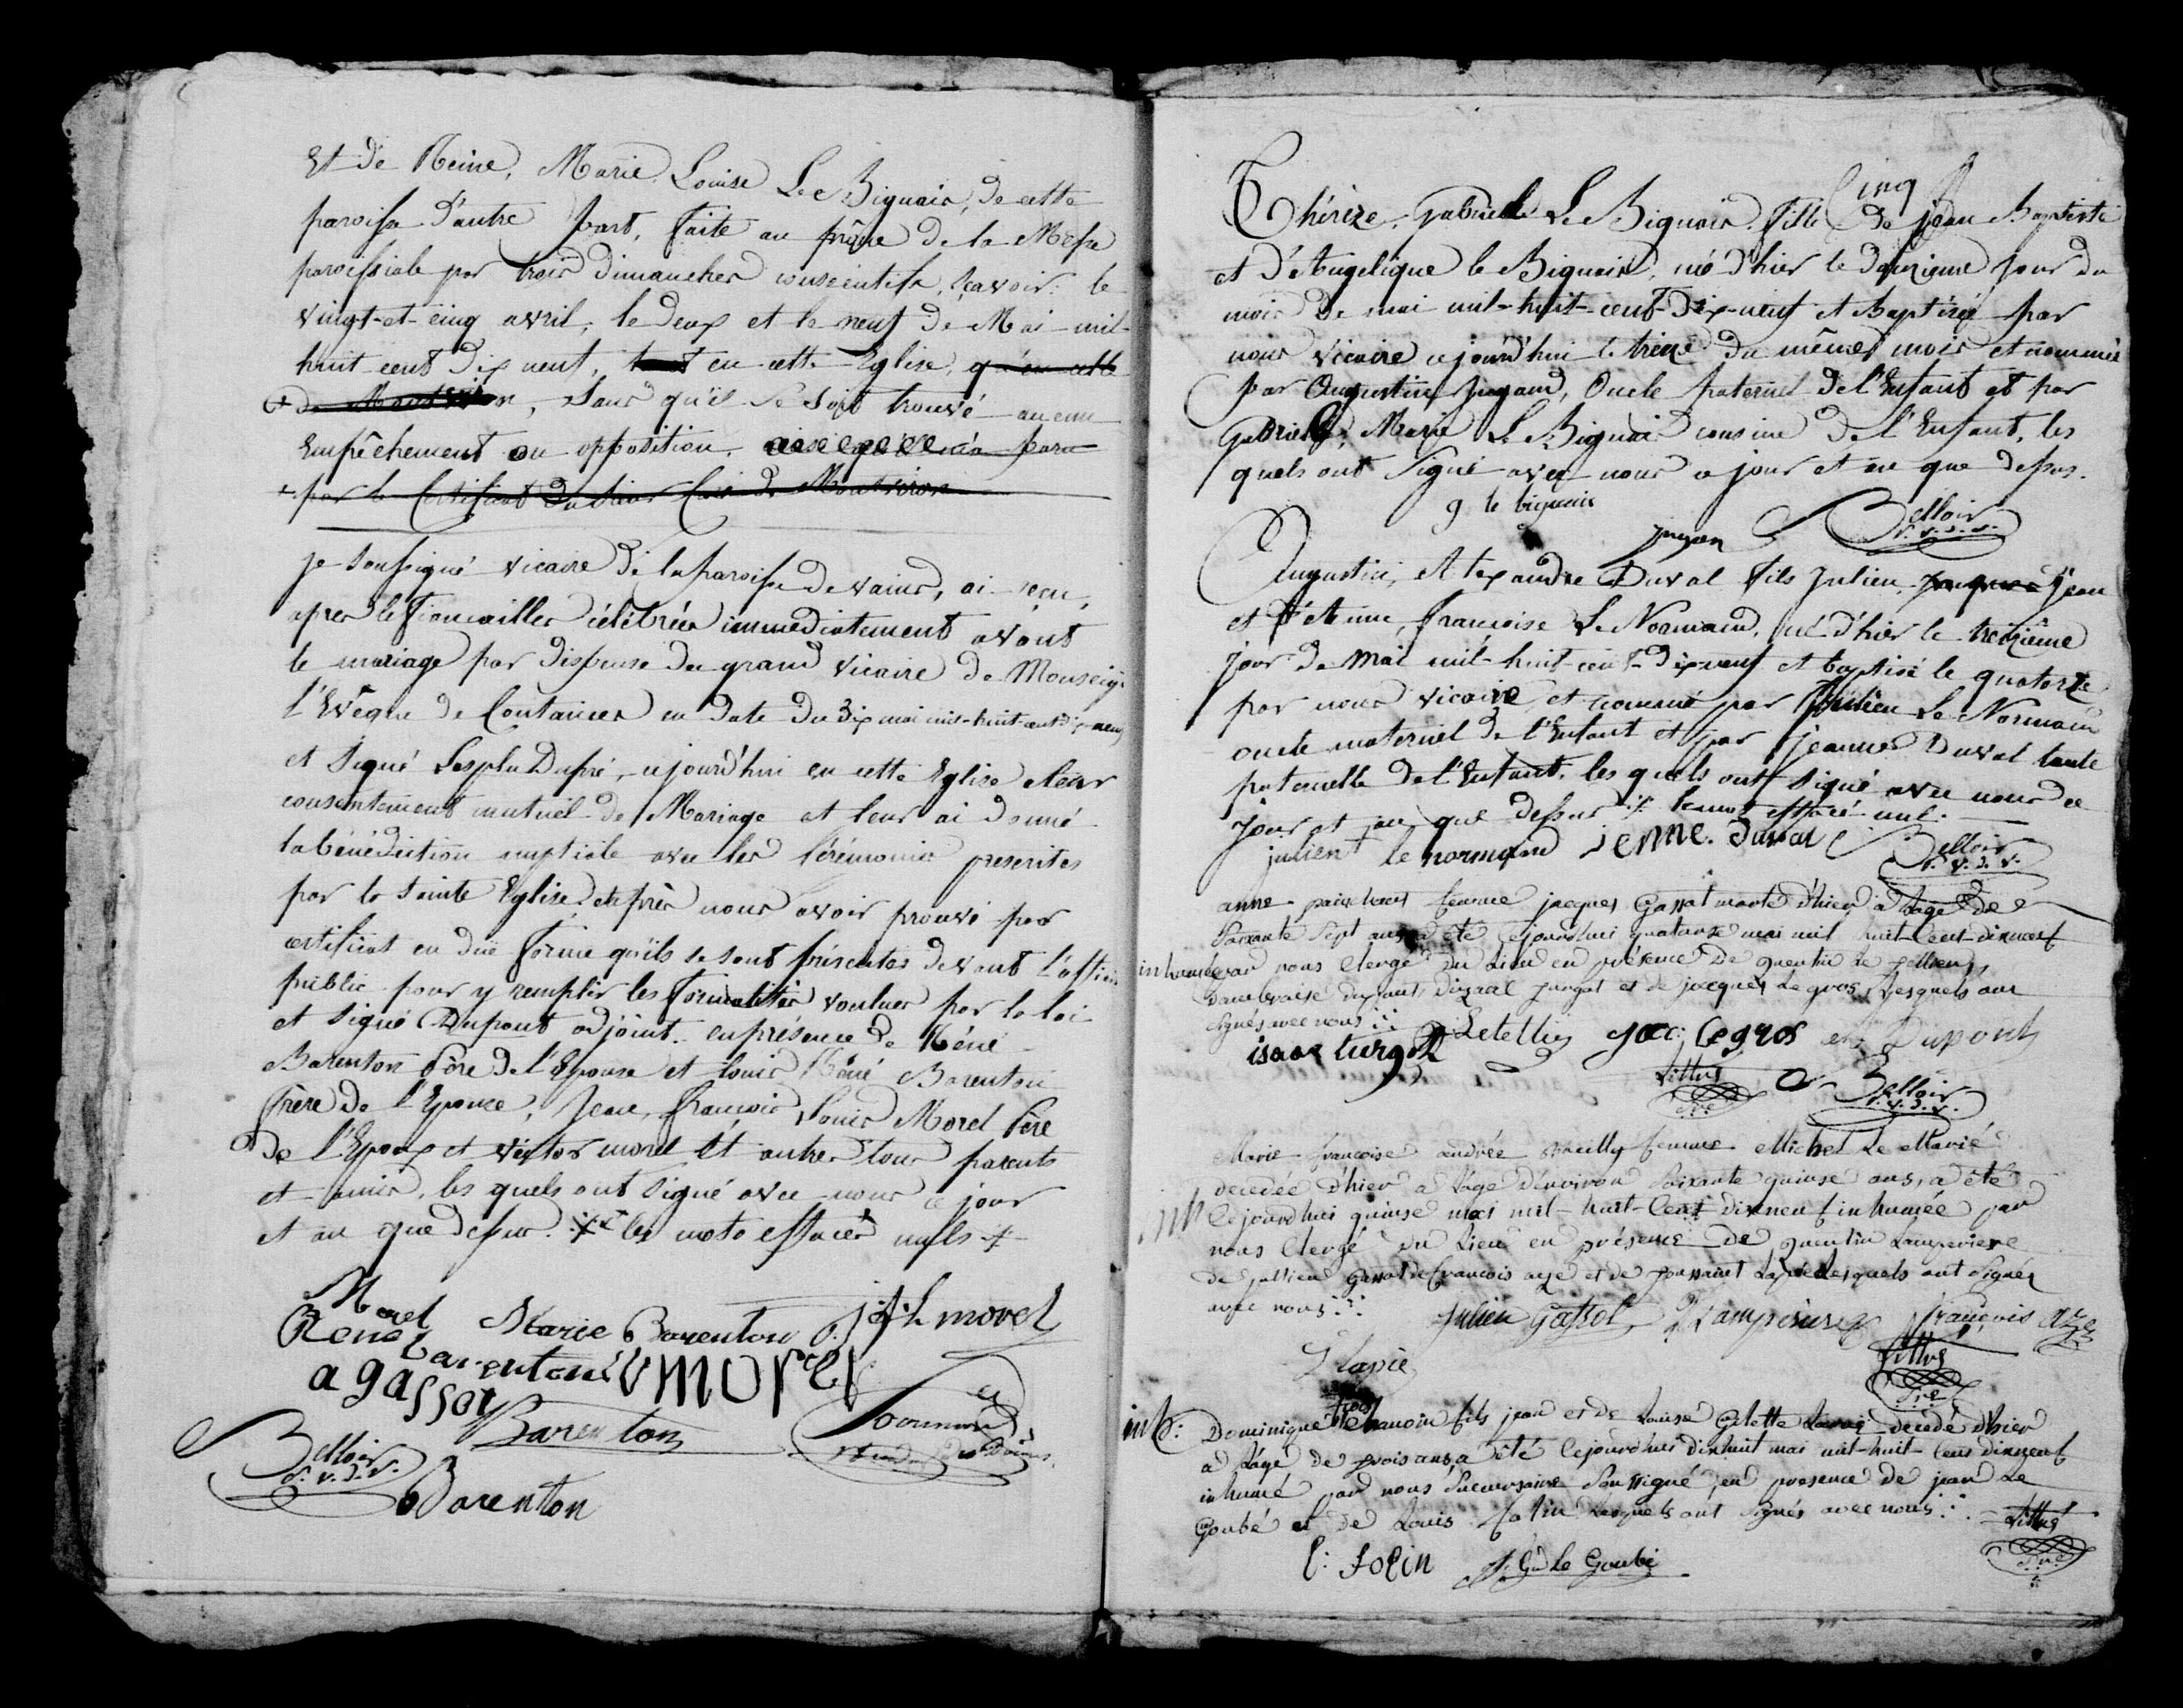 Et de Reine, Marie Louise Le Biguais, de cette
paroisse d'autre part, faite au prône de la Messe
paroissiale par trois dimanches consécutifs, sçavoir: le
vingt-et-cinq avril, le deux et le neuf de Mai mil-
huit cent dix neuf, tant en cette Eglise, qu'en celle
de Montviron, sans qu'il se soit trouvé aucun
Empêchement ou opposition,
par le Certificat du sieur Curé de Montviron
je soussigné vicaire de la paroisse de vains, ai reçu,
apres les fiancailles célébrées immédiatement avant
le mariage par dispense du grand vicaire de Monseigr
l'Evêque de Coutances en date du dix mai mil-huit cent dix-neuf
et signé Lesplu Dupré, ajourd'hui en cette Eglise leur
consentement mutuel de Mariage et leur ai donné
la bénédiction nuptiale avec les Cérémonies prescrites
par la Sainte Eglise, après nous avoir prouvé par
certificat en duë forme qu'ils se sont présentés devant l'officier
public pour y remplir les formalités voulues par la loi
et signé Dupont adjoint. en présence de Réné
Barenton Père de l'Epouse et Louis Réné Barenton
frère de l'Epouse, Jean, François Louis Morel Père
de l'Epoux et victor morel Et autres tous parents
et amis, les quels ont signé avec nous ce jour
et an que dessus. les mots effacés nuls
Morel Marie Barenton j. f. L. morel
Rene Barenton V MOREL
a gassot
Barenton
Belloir
v. d. v.
Barenton
Cinq
Thérèze, Gabrielle Le Biguais fille de jean Baptiste
et d'Angelique le Biguais, né d'hier le douzieme jour du
mois de mai mil-huit-cent-dix-neuf et Baptizé par
nous vicaire ajourd'hui le treize du même mois et nommée
par Augustin Jugan, Oncle paternel de l'Enfant et par
Gabrielle, Marie Le Biguais cousine de l'Enfant, les
quels ont signé avec nous ce jour et an que dessus.
g le biguais
jugan Belloir
v. d. v.
Augustin, Alexandre Duval fils Julien, Jacques Jean
et d'Anne, françoise Le Normand, né d'hier le treizième
jour de mai mil-huit-cent-dix-neuf et baptisé le quatorze
par nous vicaire, et nommé par Julien Le Normand
oncle maternel de l'Enfant et par jeanne Duval tante
paternelle de l'Enfant, les quels ont signé avec nous ce
jour et an que dessus. le mot effacé nul.
julient le normand jenne. duval Belloir
v. d. v.
anne femme jacques Gassot morte d'hier a l'age de
soixante Sept ans, a été cejourdhui quatorze mai mil huit-Cent-dixneuf
inhumée par nous Clergé du Lieu en présence de quentin Le
dupont, et de jacques Le gros, Lesquels ont
signés avec nous
isaac turgot Letellier jac: Legros Dupont
Belloir
v. d. v.
Marie françoise andrée femme Michel Le Marié
decedée d'hier a l'âge d'environ Soixante quinse ans, a été
inh Cejourdhui quinse mai mil-huit-Cent dixneuf inhumée par
nous Clergé du Lieu en présence de quentin Lamperiere
de jullien Gassot de francois aze et de Lesquels ont signés
avec nous
Julien Gassot Q Lamperiere françois aze
inh: Dominique fils jean et de Louise Gilette decedé d'hier
a l'age de trois ans, a été Cejourdhui dixhuit mai mil-huit-Cent dixneuf
inhumé par nous Succursaire Soussigné, en presence de jean Le
Goubé et de Louis Lesquels ont signés avec nous
l: Jolin J. Le Goubé